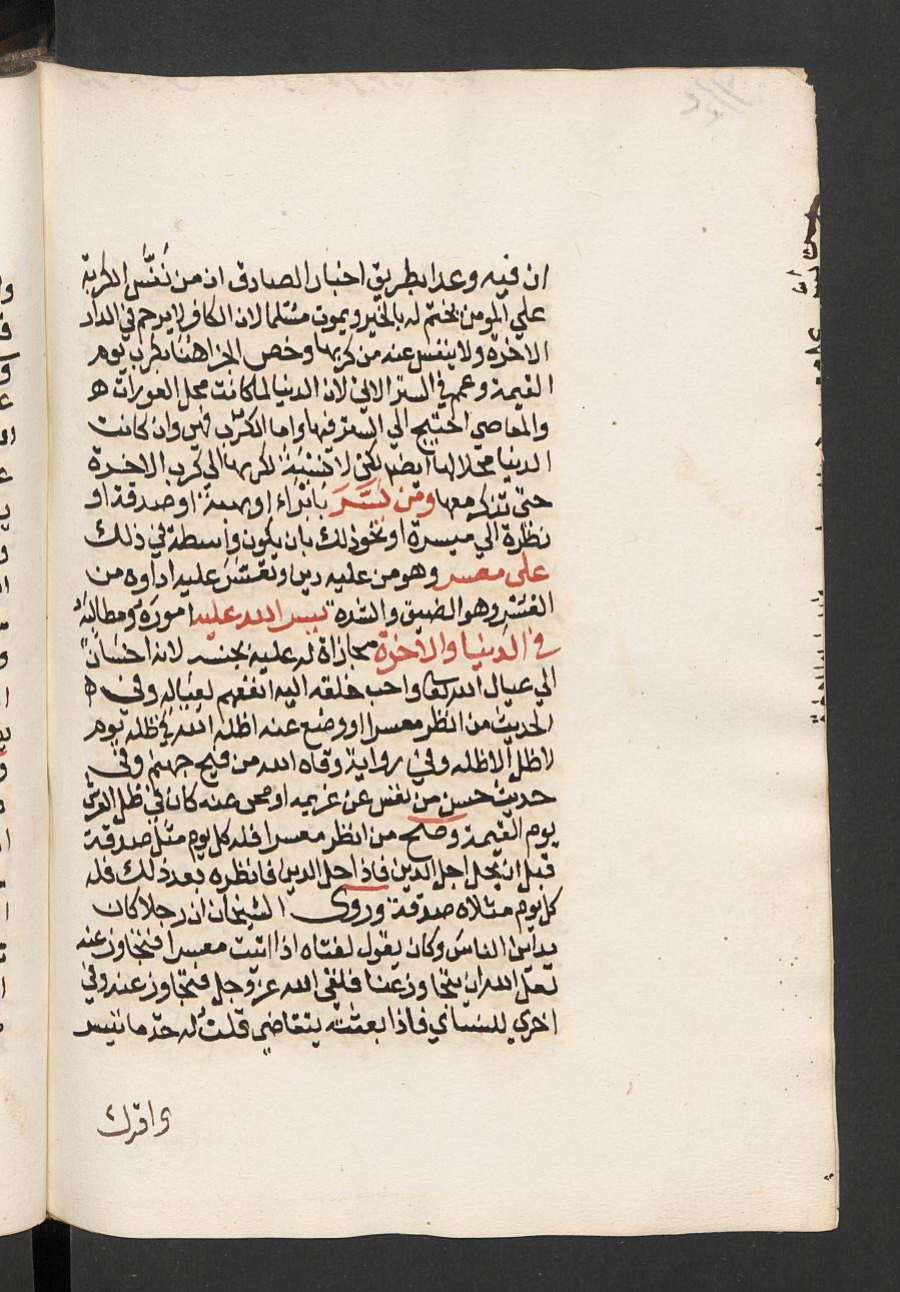 ان فيه وعدا بطريق اخبار الصادق ان من نَفَّس الكربة
علي المومن يختم له بالخير ويموت مسْلما لان الكافر لا يرحم في الدار
الاخرة ولا ينفس عنه من كربها وخص الجزا هنا بكرب يوم
القيمة وعمم في الستر الاتي لان الدنيا لما كانت محل العورات ه
والمعاصي احتيج الي الستر فيها واما الكرب فهي وان كانت
الدنيا محلا لها ايضا لكن لا نسْبَةَ لكربها الي كرب الاخرة
حتي تذكر معها ومن يَسَّرَ بابْراء او هبة او صدقة او
نظرة الي ميسرة او نحو ذلك بان يكون واسطة في ذلك
على معسر وهو من عليه دين وتعسَّرَ عليه اداوه من
العسْر وهو الضيق والشدة يسر الله عليه امورَه ومطالبَهُ
في الدنيا والاخرة مجازاة له عليه بجنسه لانه احسَان
الي عيال الله تعالى واحب خلقه اليه انفعهم لعياله وفي ه
الحديث من انظر معسرا او وضع عنه اظله الله في ظله يوم
لا ظل الا ظله وفي رواية وقاه الله من فيح جهنم وفي
حديث حسن من نفس عن غريمه او محى عنه كان في ظل العرش
يوم القيمة وصح من انظر معسرا فله كل يوم مثل صدقة
قبل ان يحل اجل الدين فاذا حل الدين فانظره بعد ذلك فله
كل يوم مثلاه صدقة وروى الشيخان ان رجلا كان
يداين الناس وكان يقول لفتاه اذا اتيت معسرا فتجاوز عنه
لعل الله ان يتجاوز عنا فلقي الله عز وجل فتجاوز عنه وفي
اخري للنساني فاذا بعثته يتقاضي قلت له خذ ما تيسر
واترك